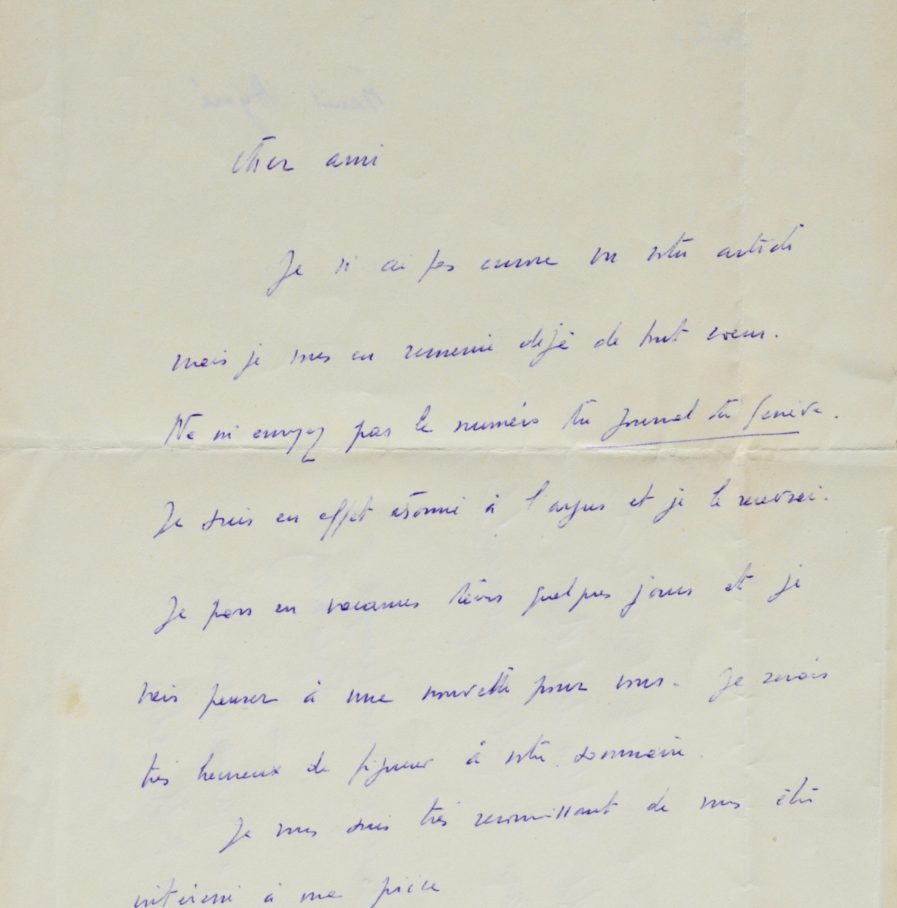 Cher ami
Je n'ai pas encore vu votre article
mais je vous en remercie déjà de tout coeur.
Ne m'envoyez pas le numéro du Journal de Genève.
Je suis en effet abonné à l'argus et je le recevrai.
Je pars en vacances dans quelques jours et je
vais penser à une nouvelle pour vous. Je serais
très heureux de figurer à votre sommaire.
Je vous suis très reconnaissant de vous être
intéressé à ma pièce